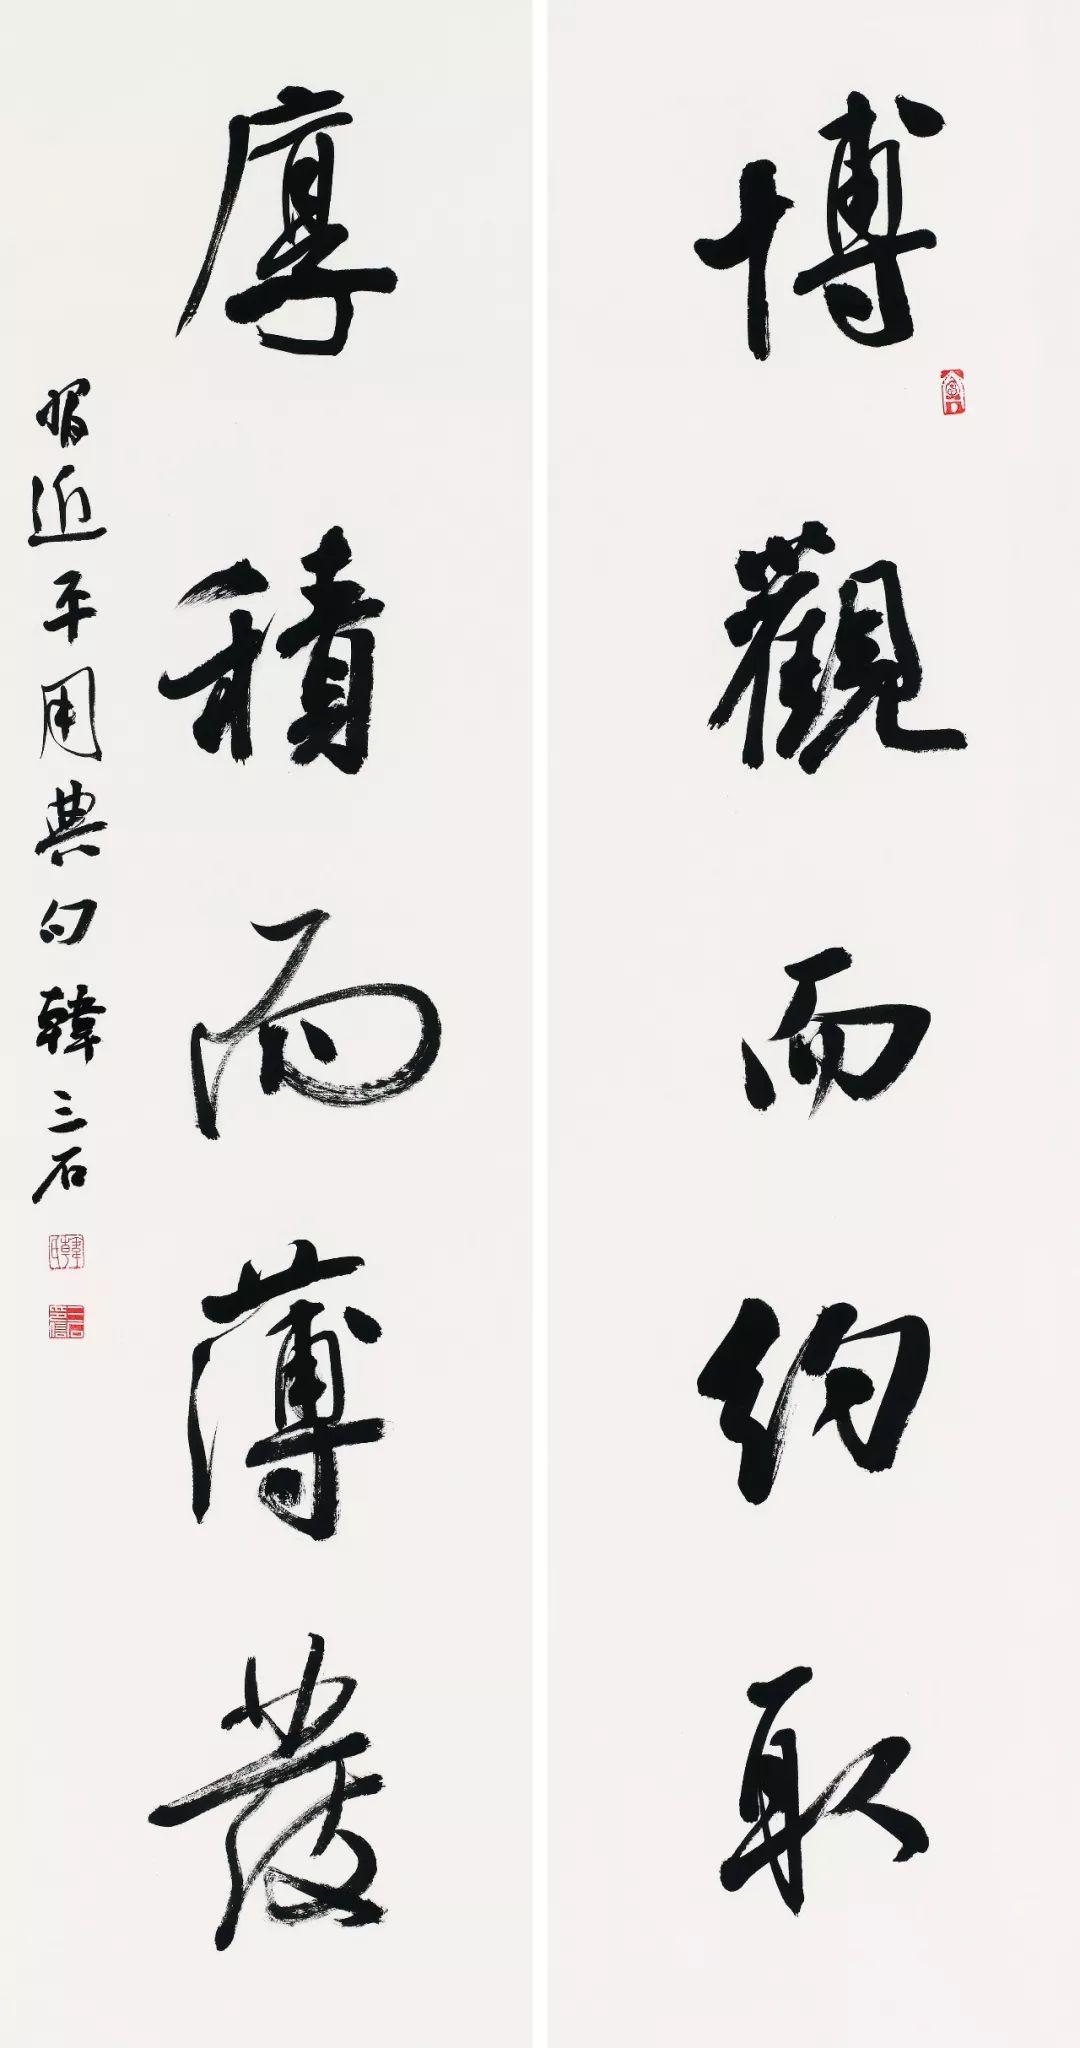 博觀而約取
厚積而薄發
習近平用典句韓三石